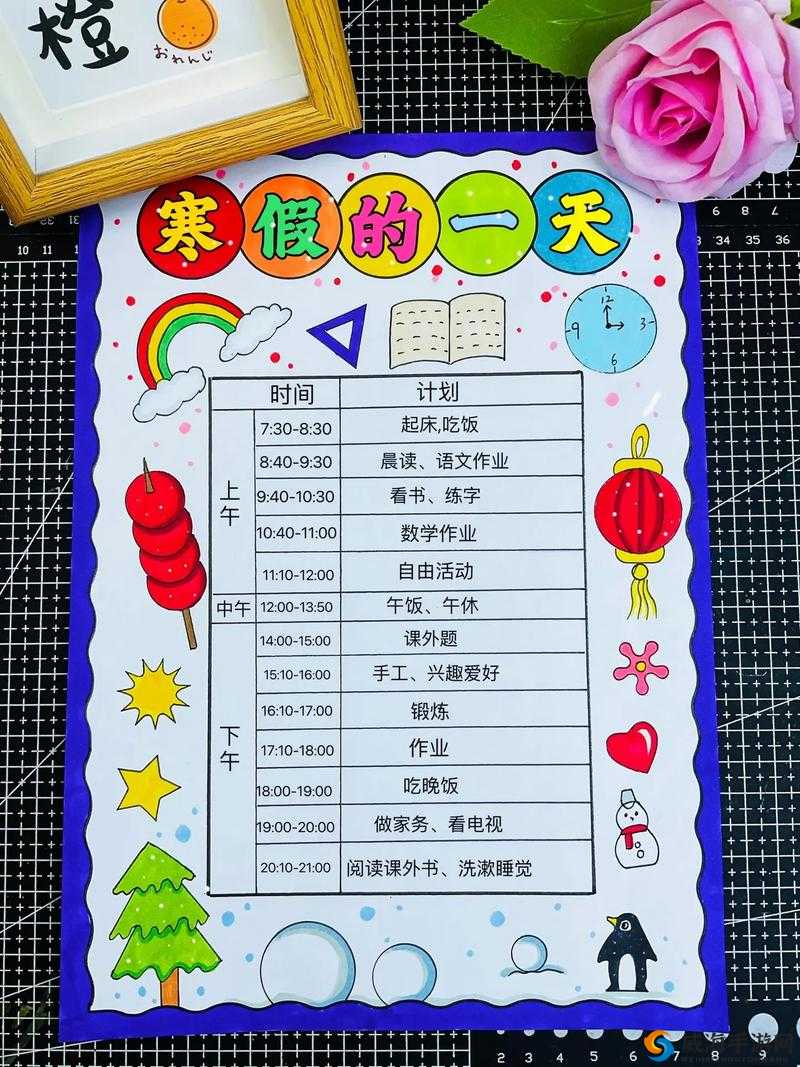 橙
おれんじ
寒假的一天
12
9 3
6
时间 计划
上午
7:30-8:30 起床,吃饭
8:40-9:30 晨读、语文作业
9:40-10:30 看书、练字
10:40-11:00 数学作业
11:10-12:00 自由活动
中午 12:00-13:50 午饭、午休
下午
14:00-15:00 课外题
15:10-16:00 手工、兴趣爱好
16:10-17:00 锻炼
17:10-18:00 作业
18:00-19:00 吃晚饭
19:00-20:00 做家务、看电视
20:10-21:00 阅读课外书、洗漱睡觉
10 11
34 35 36
2 3 4 5 6 7 8 9